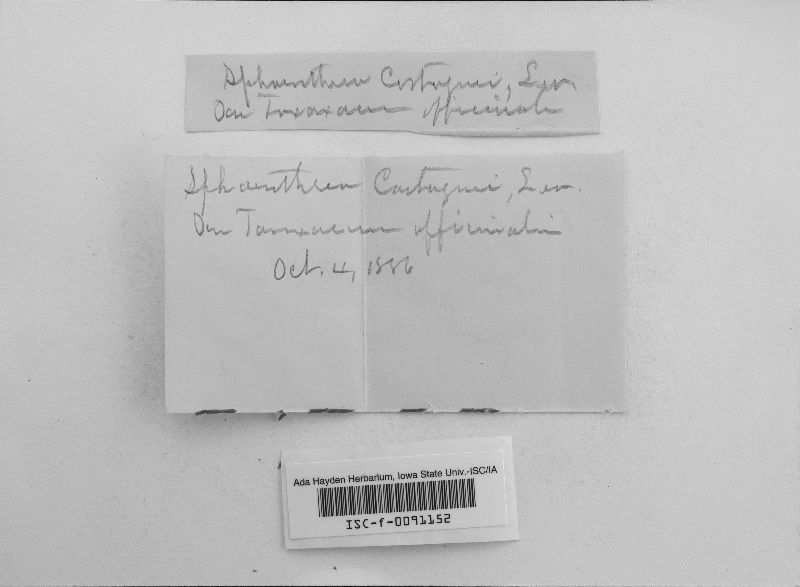 Sphaerotheca Castagnei, Lev.
On Taraxacum officinale
Sphaerotheca Castagnei, Lev.
On Taraxacum officinalis
Oct. 4, 1886
Ada Hayden Herbarium, Iowa State Univ.-ISC/IA
ISC-f-0091152